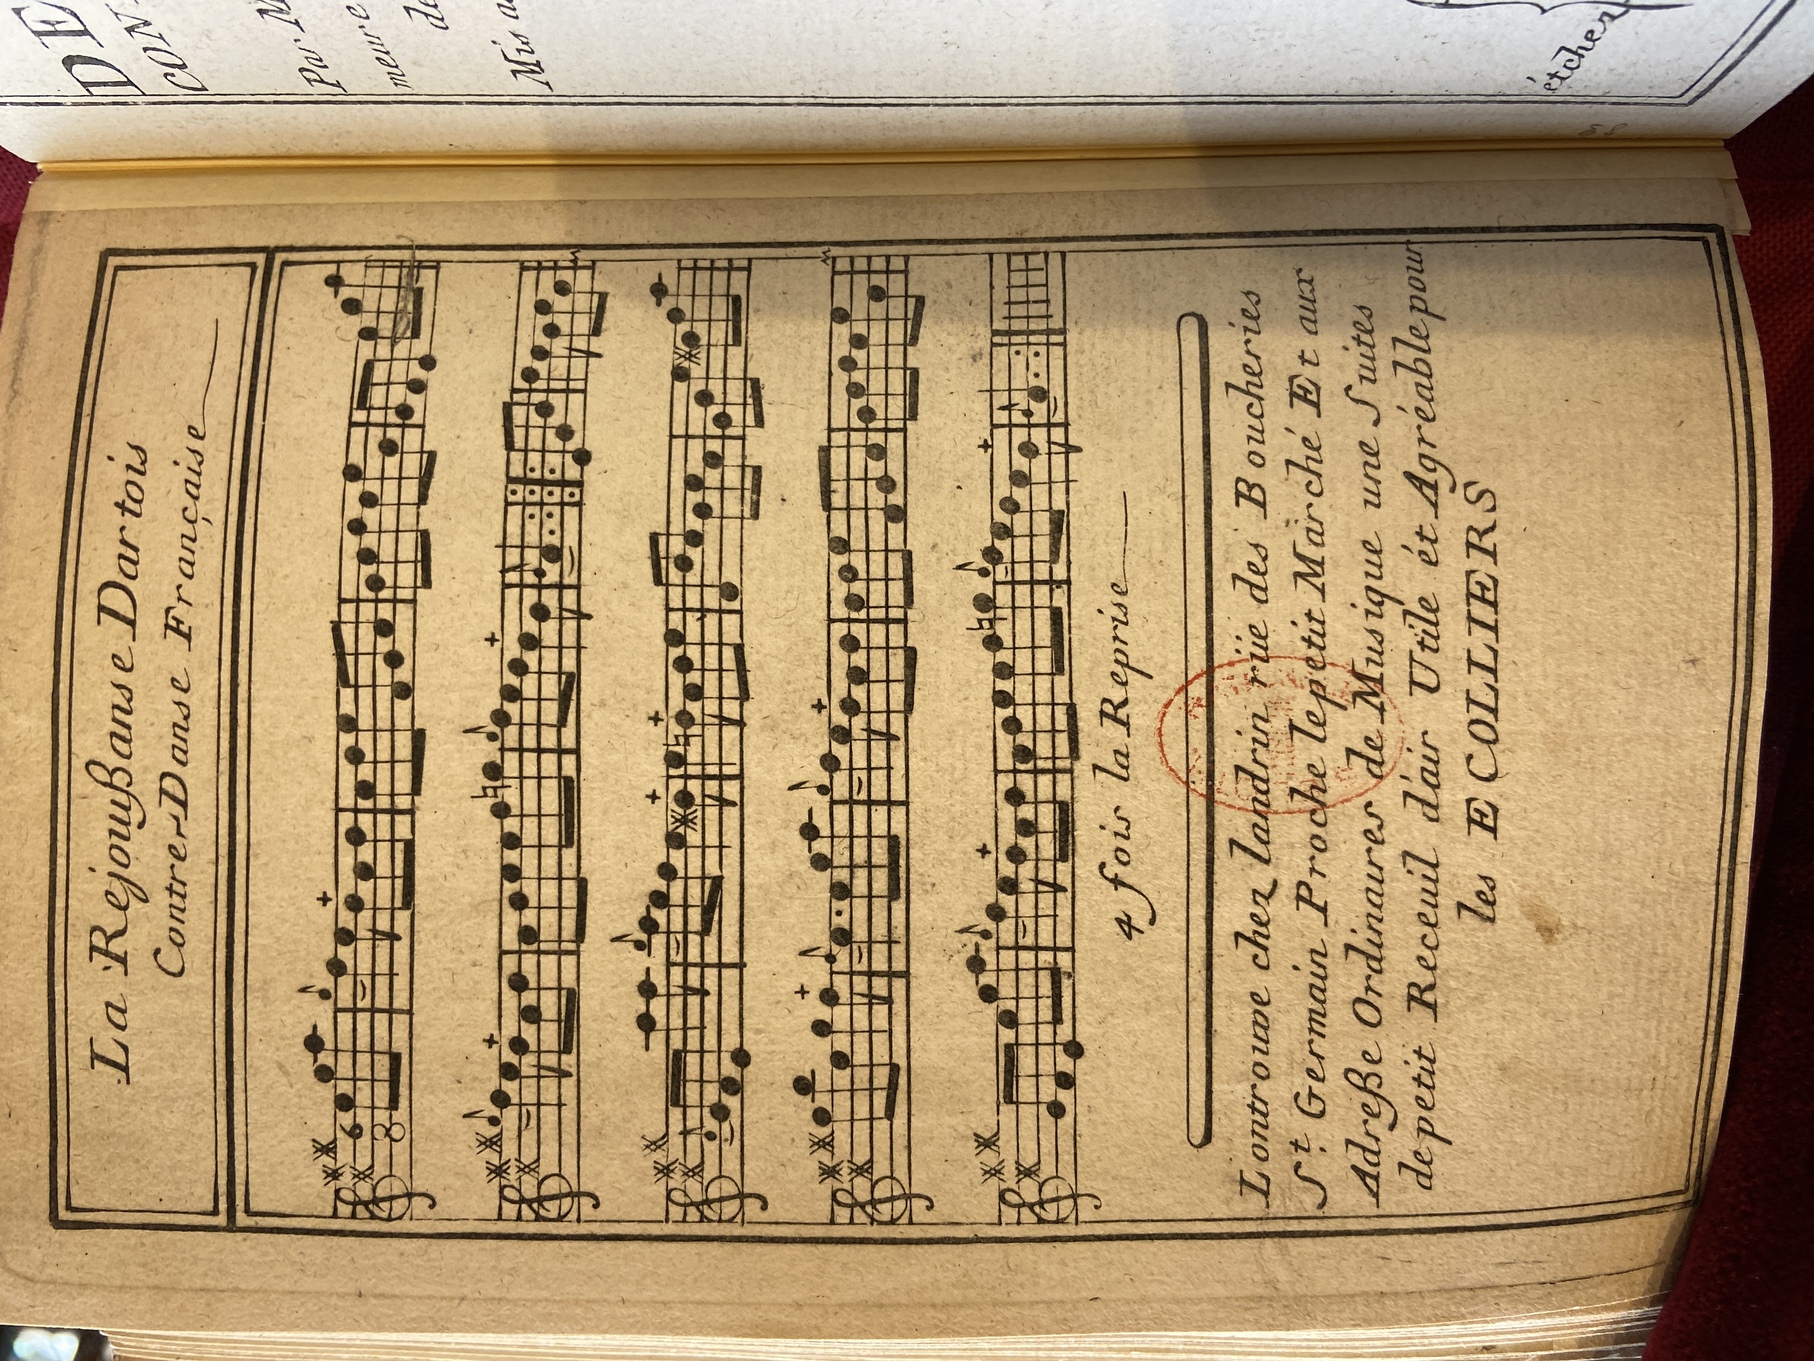 La Rejouißanse Dartois
Contre-Danse Française
6
8
4 fois la Reprise
Lontrouve chez landrin rüe des Boucheries
St. Germain Proche lepetit Marché Et aux
Adreße Ordinaures de Musique une Suites
depetit Receuil dair Utile ét Agréable pour
les ECOLLIERS
DE
CON
Par
meure
de
Mis
étcher